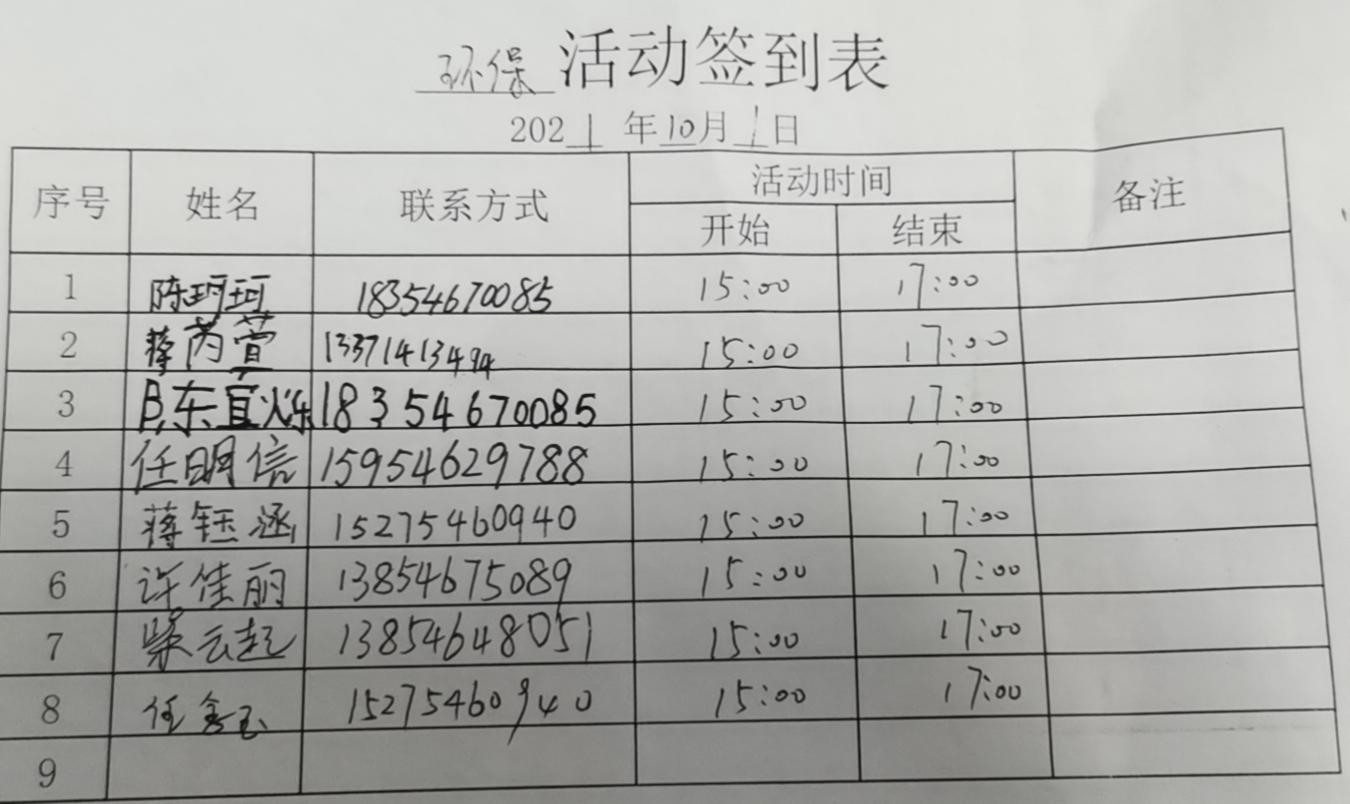 环保 活动签到表
2021年10月1日
序号 姓名 联系方式 活动时间 备注
开始 结束
1 陈玥珂 18354670085 15:00 17:00
2 蒋芮萱 13371413494 15:00 17:00
3 陈宜烁 18354670085 15:00 17:00
4 任明信 15954629788 15:00 17:00
5 蒋钰涵 15275460940 15:00 17:00
6 许佳丽 13854675089 15:00 17:00
7 柴云起 13854648051 15:00 17:00
8 任鑫玉 15275460940 15:00 17:00
9